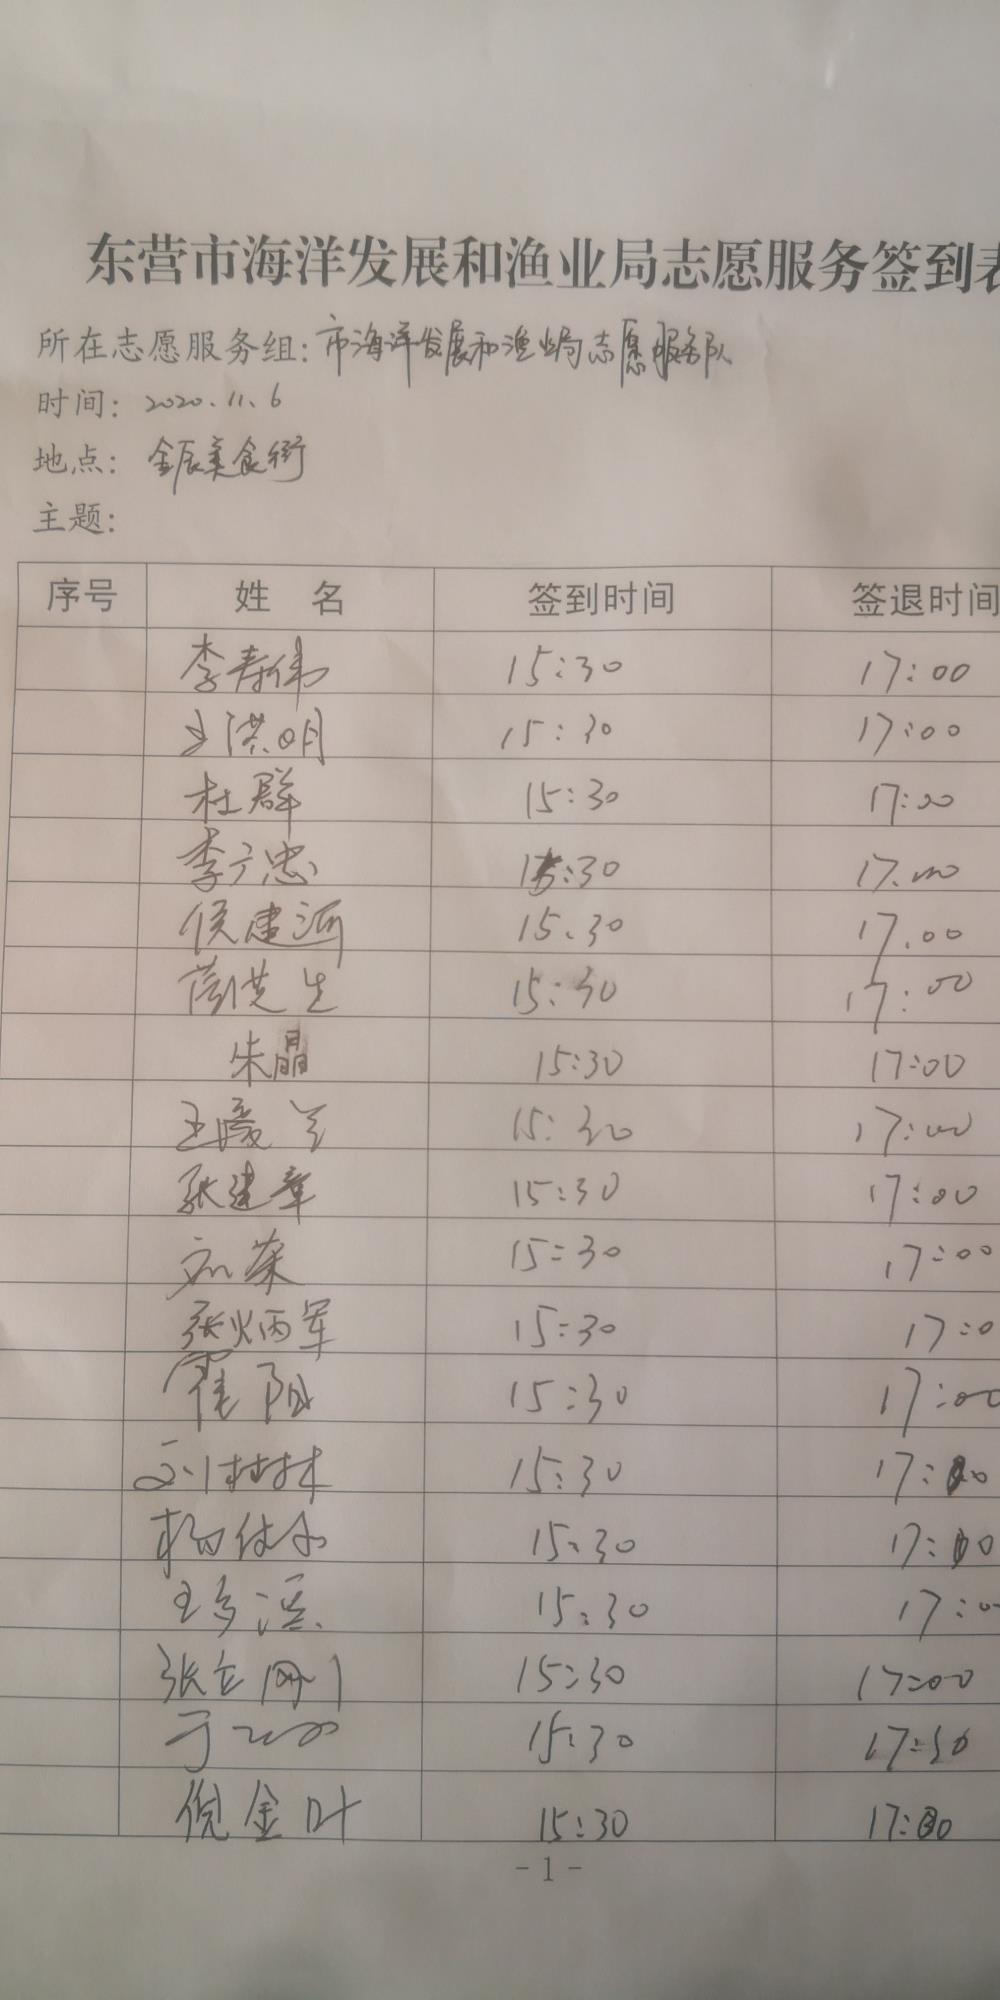 东营市海洋发展和渔业局志愿服务签到表
所在志愿服务组: 市海洋发展和渔业局志愿服务队
时间: 2020.11.6
地点: 金辰美食街
主题:
序号 姓 名 签到时间 签退时间
李寿伟 15:30 17:00
王洪明 15:30 17:00
杜群 15:30 17:00
李广忠 15:30 17:00
侯建河 15.30 17.00
15:30 17:00
朱晶 15:30 17:00
15:30 17:00
张建章 15:30 17:00
刘荣 15:30 17:00
张炳军 15:30 17:0
霍阳 15:30 17:00
刘林林 15:30 17:00
15:30 17:00
15:30 17:0
张立网 15:30 17:00
于 15:30 17:30
倪金叶 15:30 17:00
- 1 -